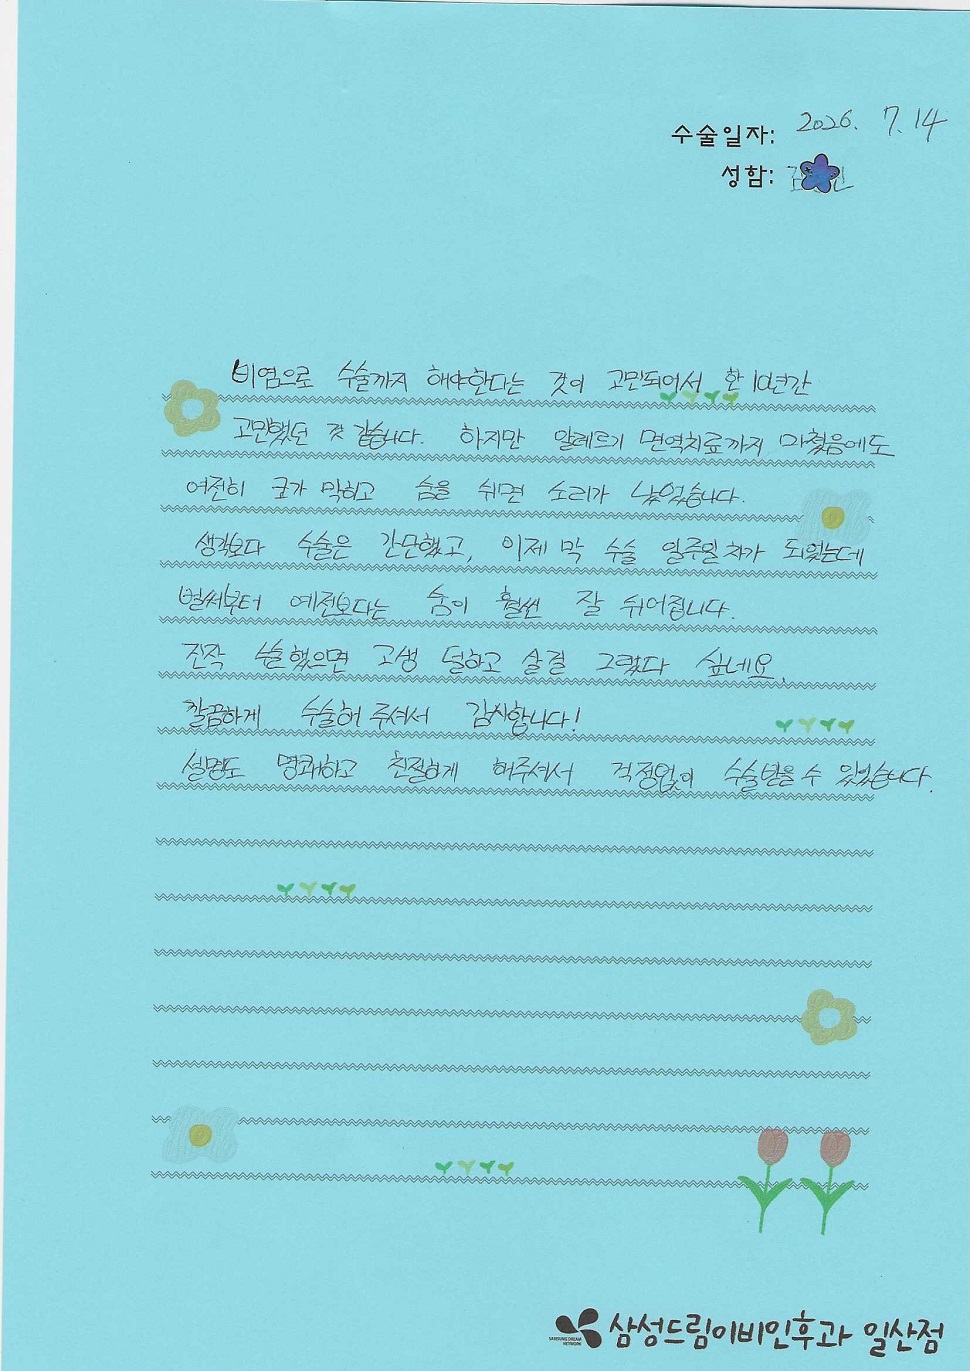 수술일자: 2026. 7. 14
성함: 김
비염으로 수술까지 해야한다는 것이 고민되어서 한 10년간
고민했던 것 같습니다. 하지만 알레르기 면역치료까지 마쳤음에도
여전히 코가 막히고 숨을 쉬면 소리가 났었습니다.
생각보다 수술은 간단했고, 이제 막 수술 일주일차가 되었는데
벌써부터 예전보다는 숨이 훨씬 잘 쉬어집니다.
진작 수술했으면 고생 덜하고 살걸 그랬다 싶네요.
깔끔하게 수술해 주셔서 감사합니다!
설명도 명쾌하고 친절하게 해주셔서 걱정없이 수술받을 수 있었습니다.
SAMSUNG DREAM
NETWORK
삼성드림이비인후과 일산점